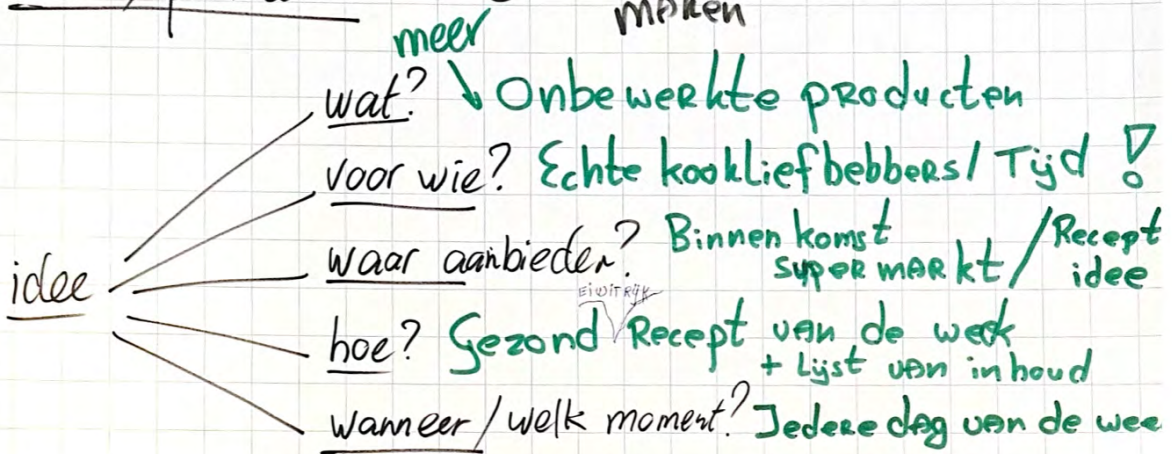 maken
meer
wat? ↓ Onbewerkte producten
voor wie? Echte kookliefbebbers / Tijd !
waar aanbieden? Binnenkomst supermarkt / Recept idee
EiWiTRijK
hoe? Gezond Recept van de week
+ Lijst van inhoud
idee
wanneer / welk moment? Jedere dag van de wee